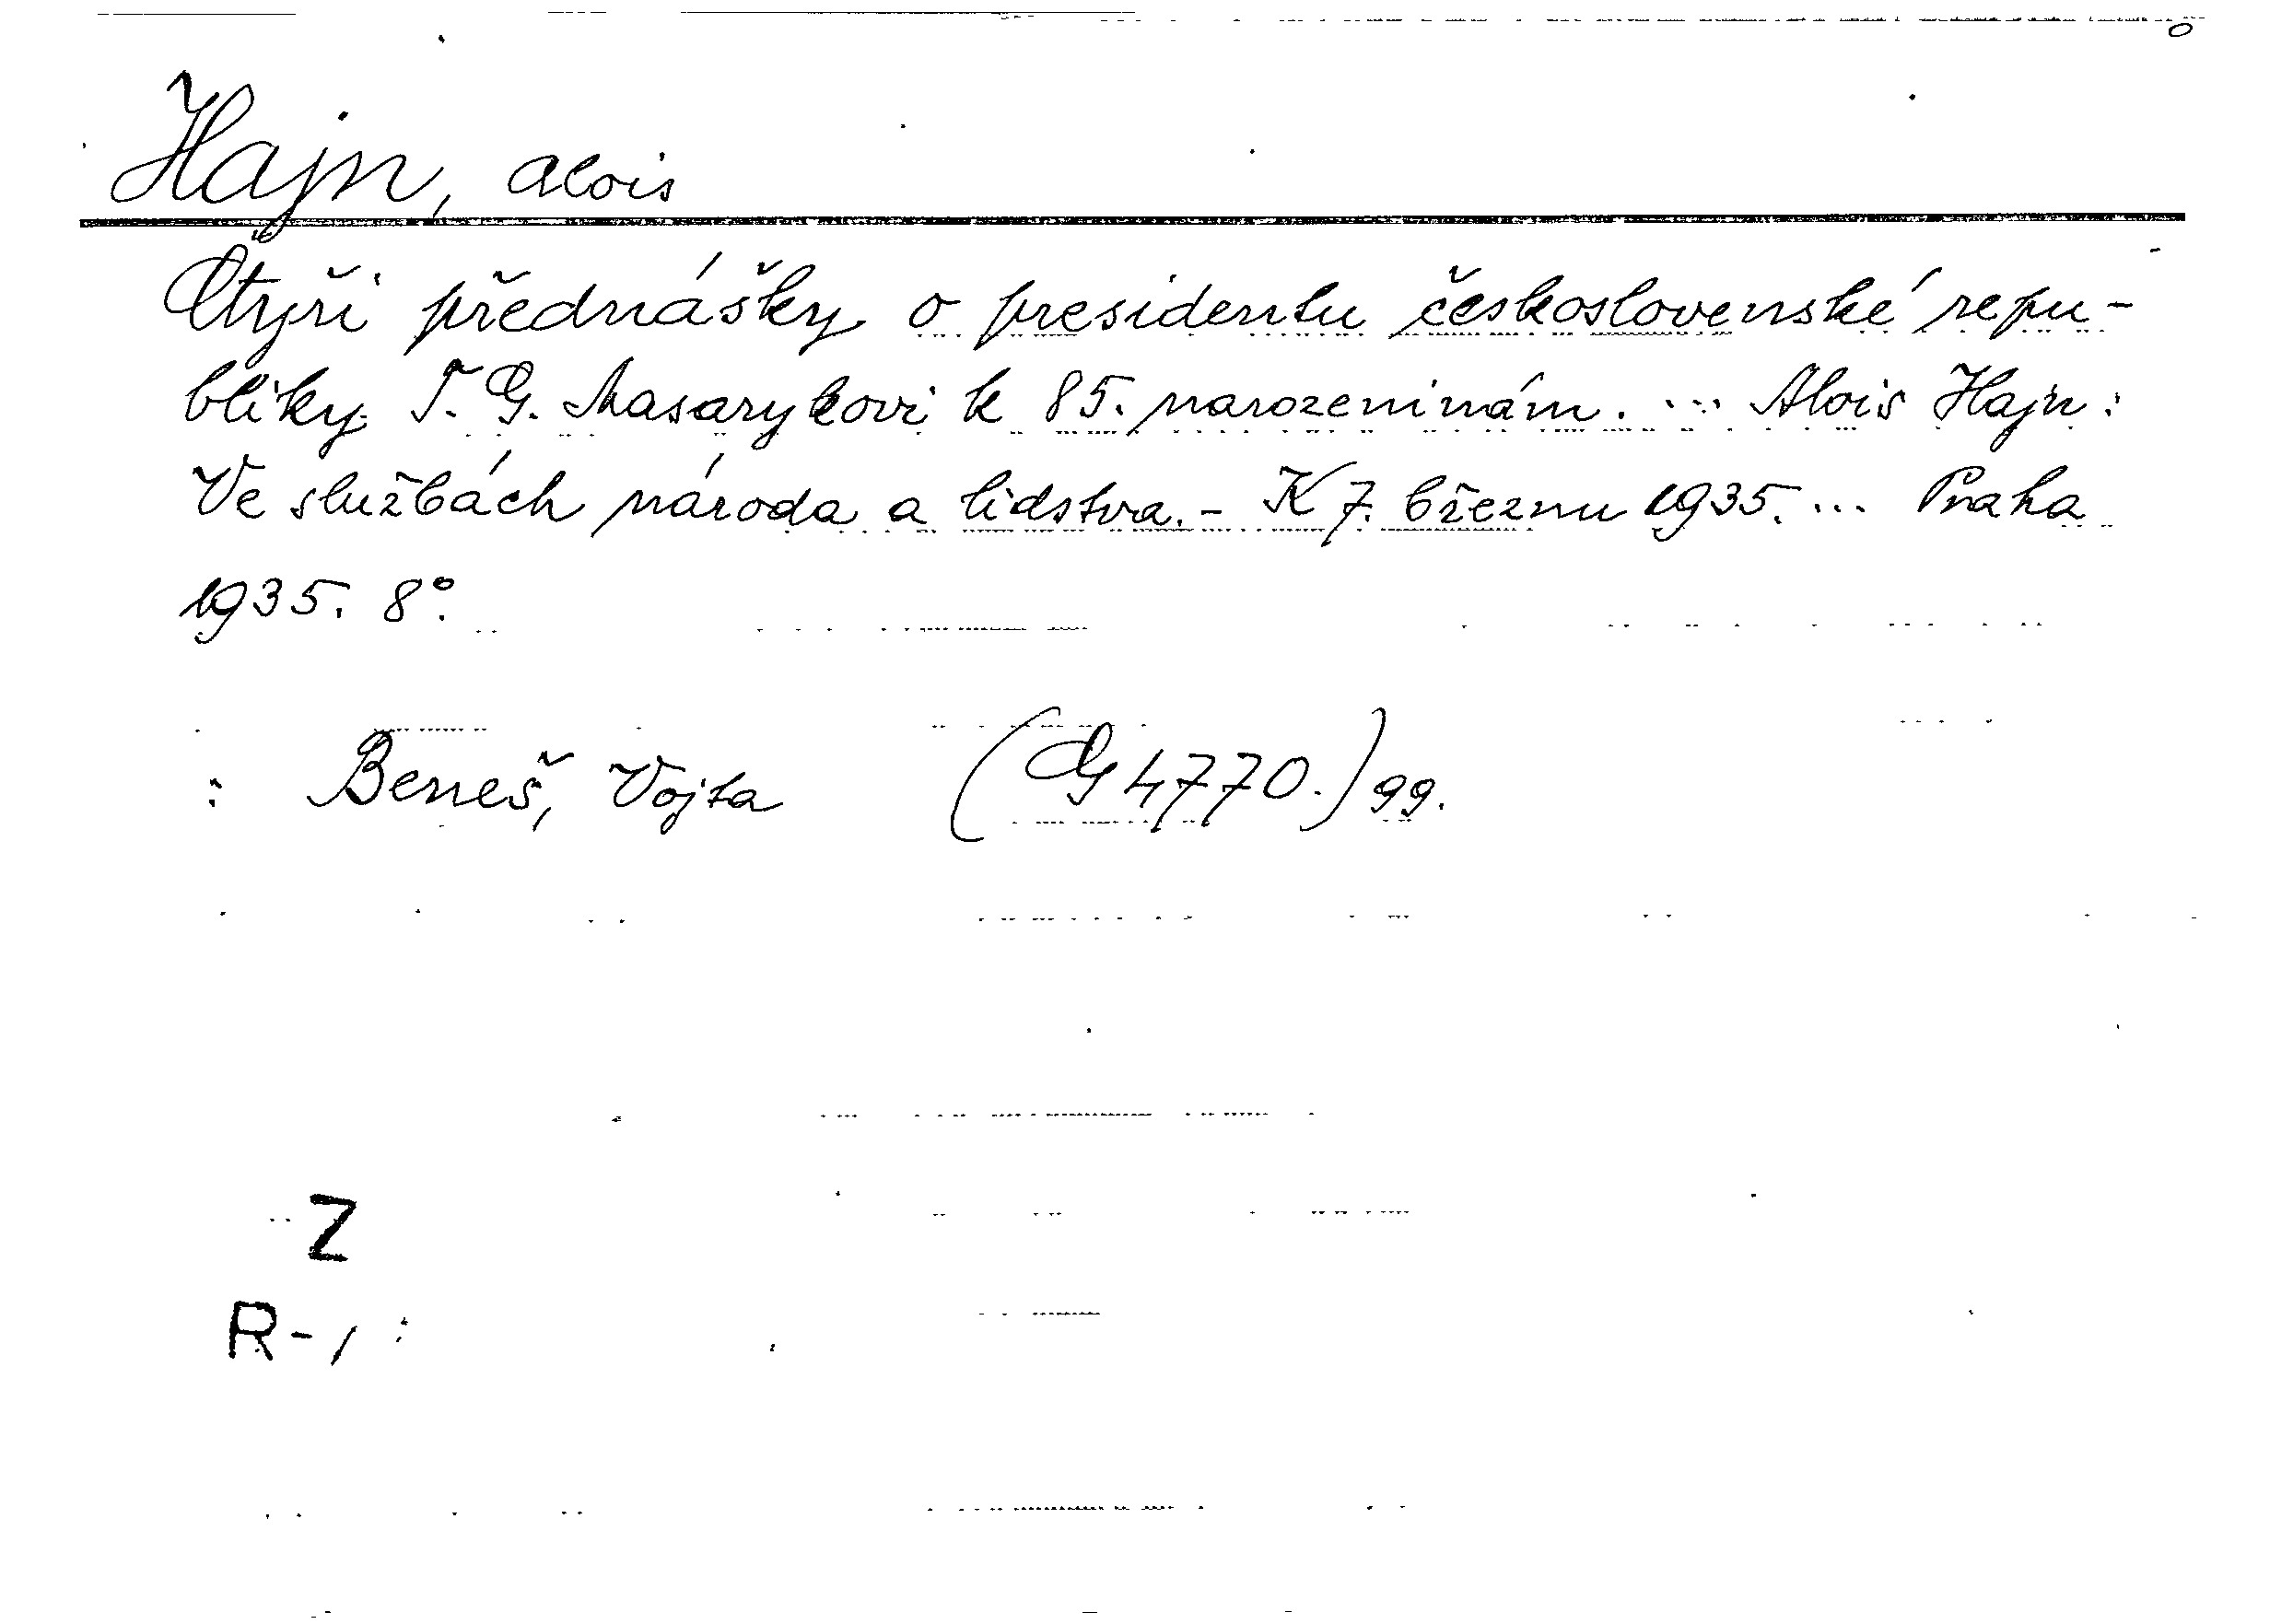 Hajn, Alois
Čtyři přednášky o presidentu československé repu-
bliky T. G. Masarykovi k 85. narozeninám. ... Alois Hajn:
Ve službách národa a lidstva. - K 7. březnu 1935. ... Praha
1935. 8°.
: Beneš, Vojta (G 4770.) 99.
Z
R-